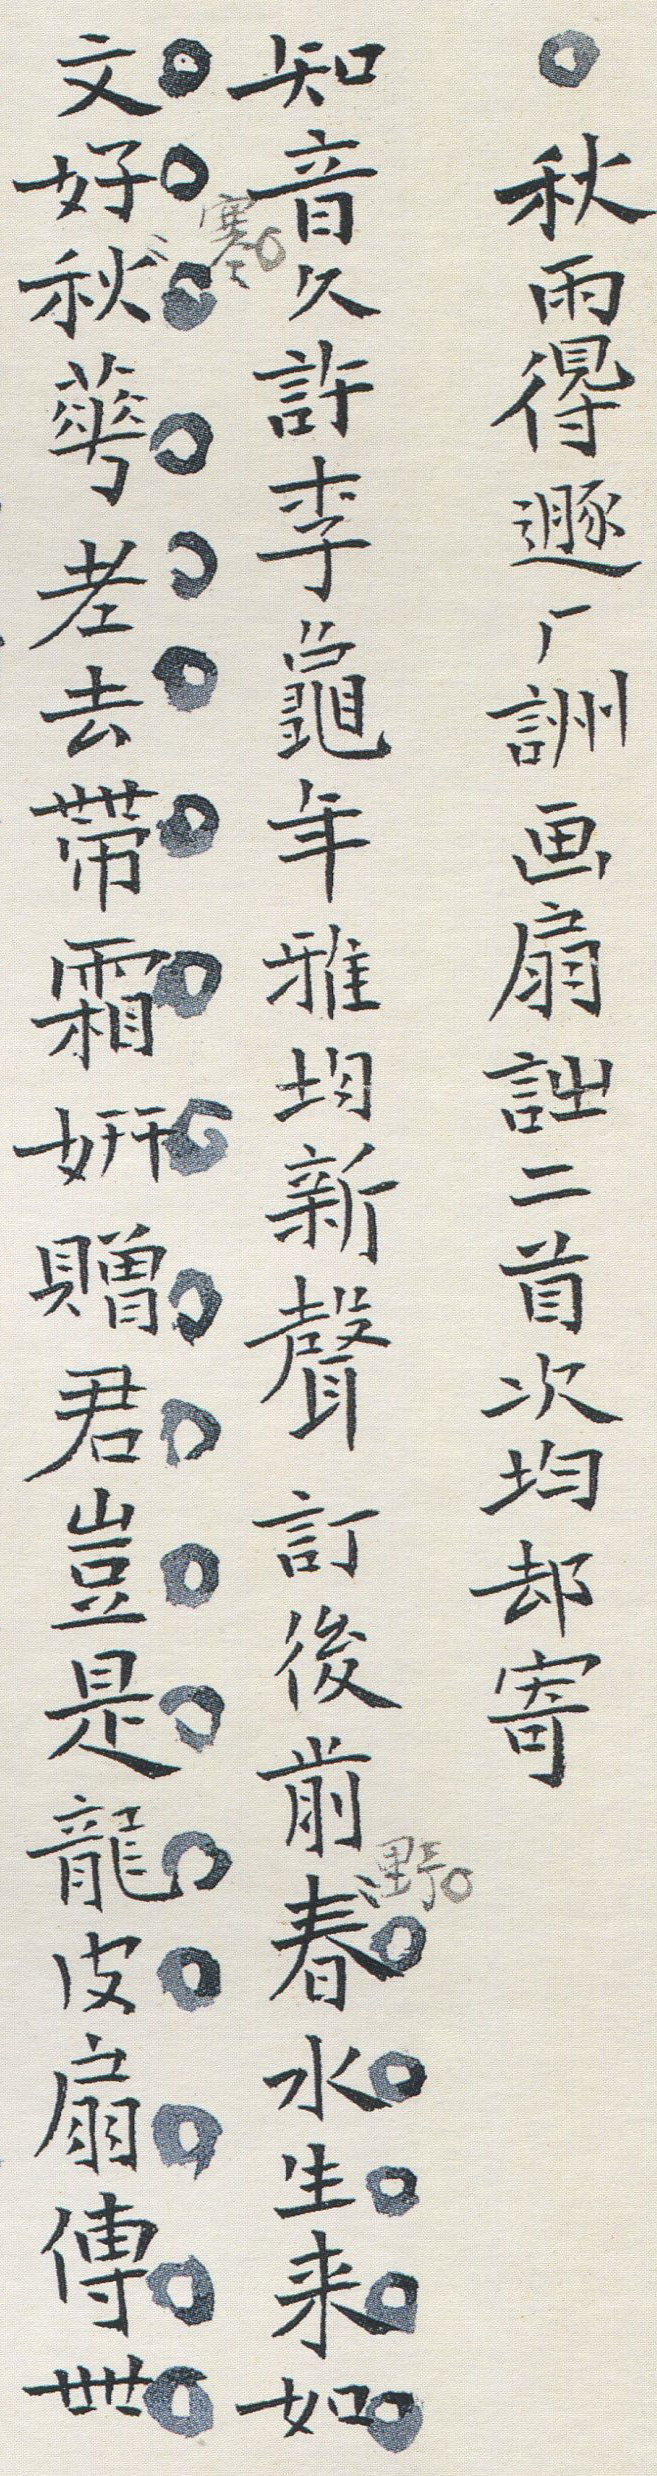 秋雨得遯厂詶画扇詘二首次均却寄
知音久許李龜年雅均新聲訂後前春水生来如
野
文好秋華老去帶霜妍贈君豈是龍皮扇傳世
寒